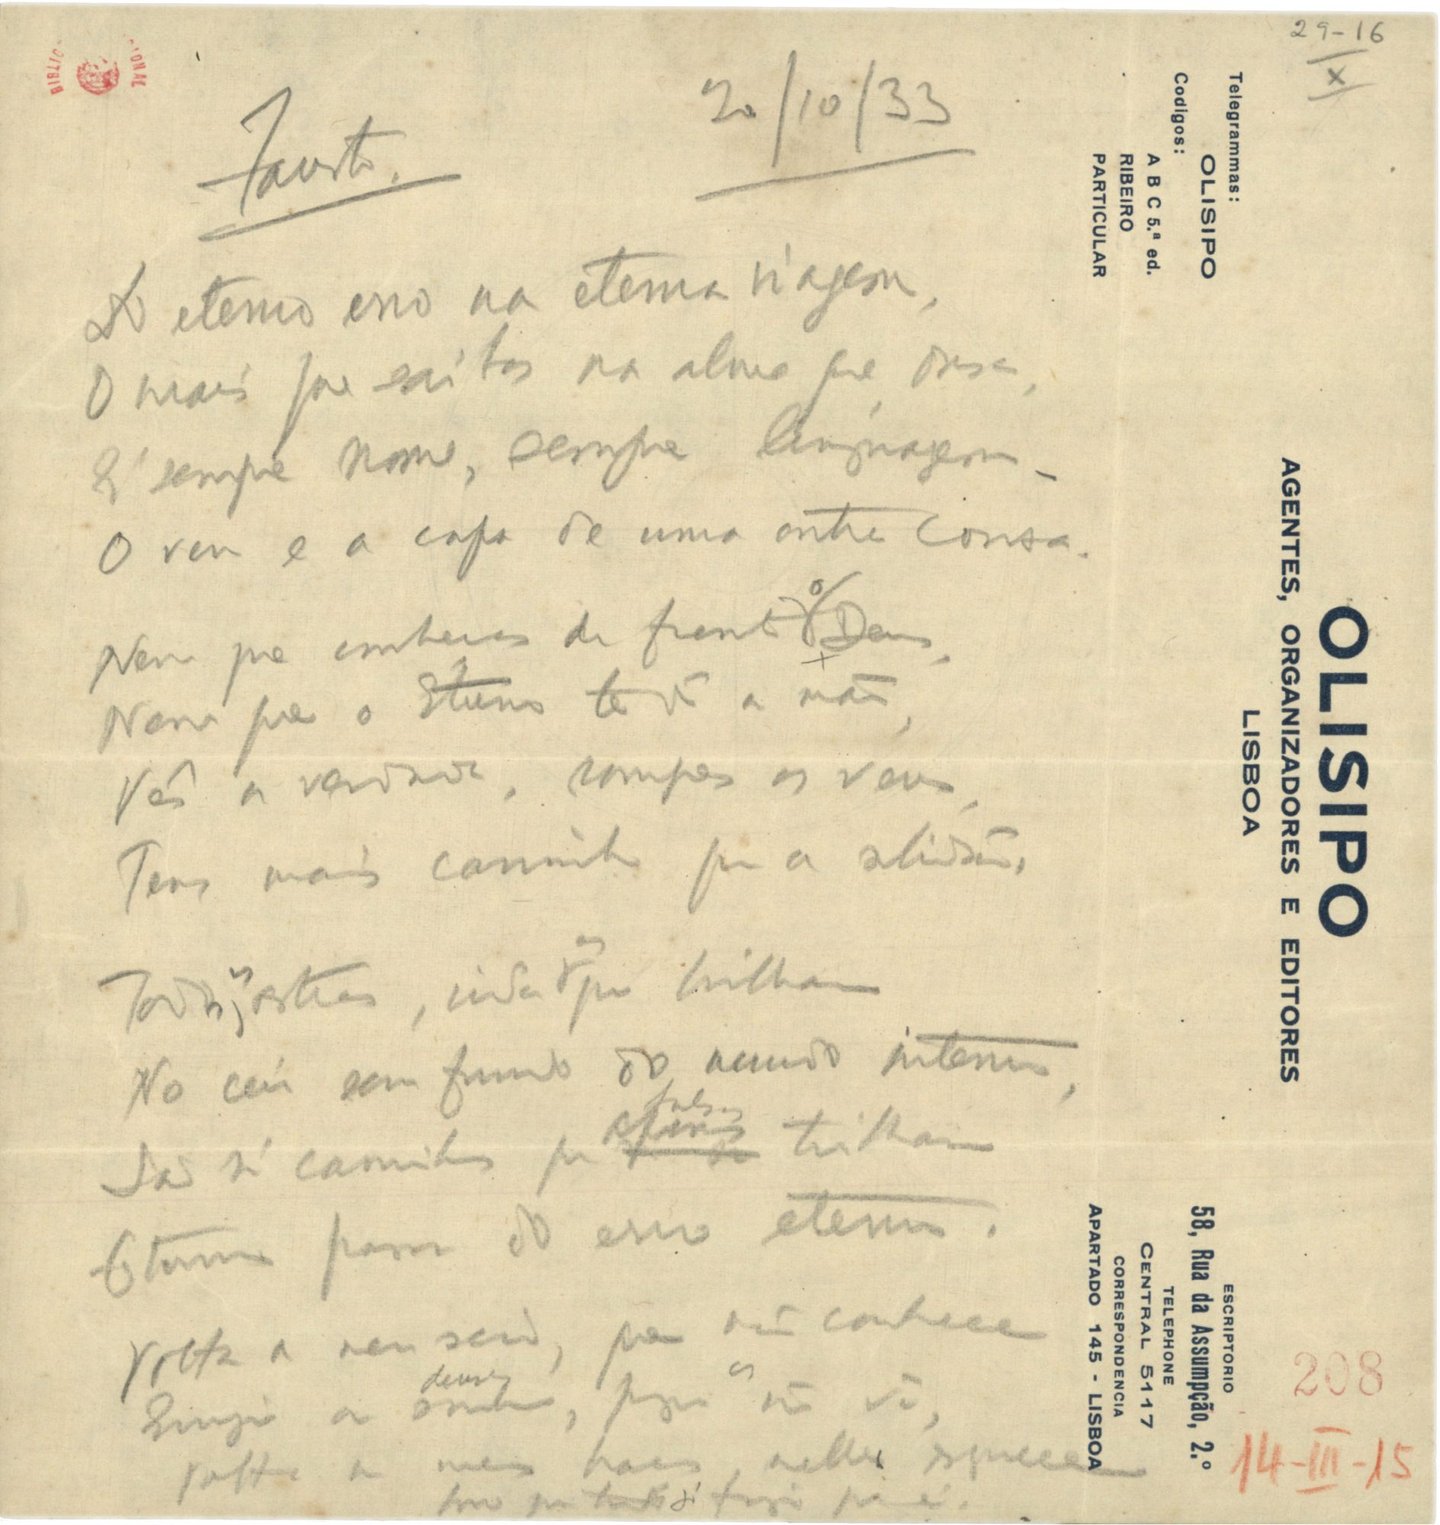 29-16
X
Fausto.
20/10/33
Do eterno erro na eterna viagem,
O mais que na alma que ousa,
É sempre nome, sempre linguagem –
O veu e a capa de uma outra cousa.
Nem que conheças de frente o Deus,
Nem que o Eterno te dê a mão,
Vês a verdade, rompes os veus,
Tens mais caminho que a solidão.
Todos os astros, inda os que brilham
No ceu sem fundo do mundo interno,
São só caminhos que falsos trilham
Eternos passos do erro eterno.
Volta a meu seio, que não conhece
deuses
os
Surge a sombra, porque não vê,
Volta a meus, nelles esquece
OLISIPO
AGENTES, ORGANIZADORES E EDITORES
LISBOA
Telegrammas:
OLISIPO
Codigos:
A B C 5.ª ed.
RIBEIRO
PARTICULAR
ESCRIPTORIO
58, Rua da Assumpção, 2.º
TELEPHONE
CENTRAL 5117
CORRESPONDENCIA
APARTADO 145 - LISBOA
208
14-III-15